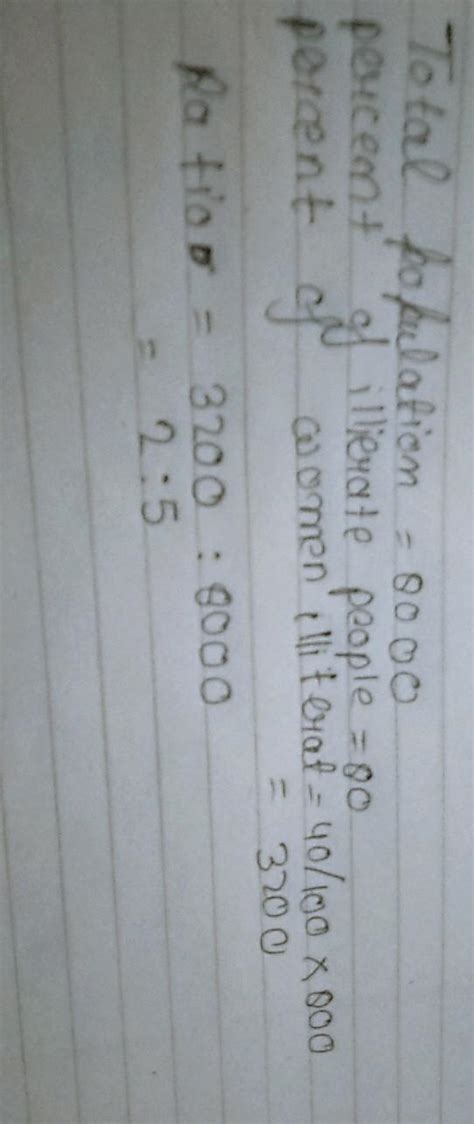 Total population = 8000
percent of illierate people = 80
percent of women illiterat = 40/100 x 800
= 3200
Ratio = 3200 : 8000
= 2:5